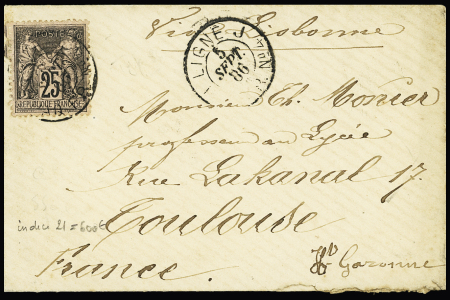 Via Lisbonne
POSTES
25
REPUBLIQUE FRANCAISE
LIGNE J
5
SEPT.
86
Monsieur Th. Monier
professeur au Lycée
Rue Lakanal 17
Toulouse
indice 21 = 600€
France.
Hte Garonne